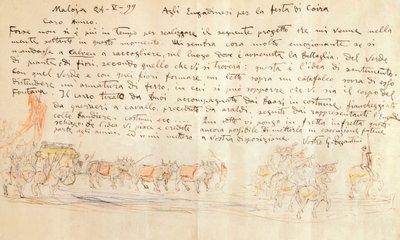 Maloja 24-X-99 Agli Engadinesi per la festa di Coira
Caro Amico.
Forse non si è più in tempo per realizzare il seguente progetto che mi venne nella
mente soltanto in questo momento. Mi sembra cosa molto emozionante se si
mandasse a Calven a raccogliere, sul luogo dove è avvenuta la battaglia, del verde
di piante, di fiori, ecc. quello che vi si troverà: questa è l'idea di sentimento.
Con quel verde e con quei fiori formare un letto sopra un catafalco sopra di esso
distendere un'armatura di ferro, in cui si può supporre che vi sia il corpo di
Fontana. Il carro tirato da buoi accompagnato dai in costume, fiancheggiato
da guerrieri a cavallo, preceduto da araldi, seguito dai rappresentanti
colle bandiere, costumi ecc. Più altro vi pongo in fretta infretta questo
se l'idea vi piace e credete ancora possibile di metterla in esecuzione fatene
parte agli amici, ed io mi metterò a Vostra disposizione.
Vostro G. Segantini